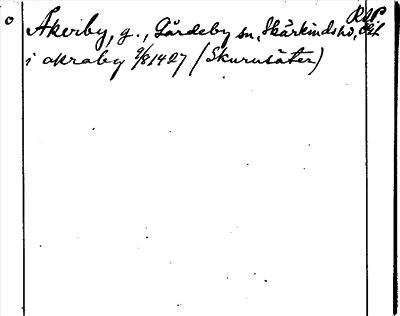 RAP
Åkerby, g., Gårdeby sn, Skärkinds hd, Ög.
i akraby 9/8 1427 (Skurusäter)